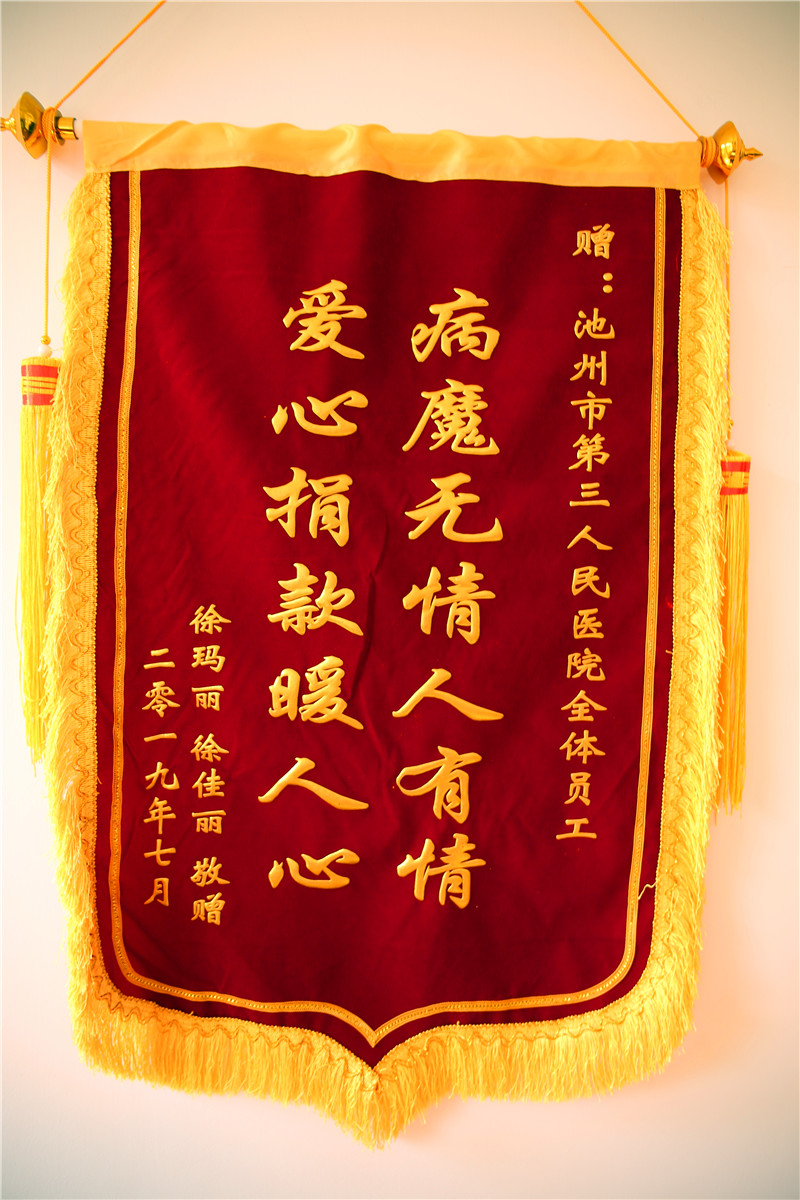 赠：池州市第三人民医院全体员工
病魔无情人有情
爱心捐款暖人心
徐玛丽 徐佳丽 敬赠
二零一九年七月